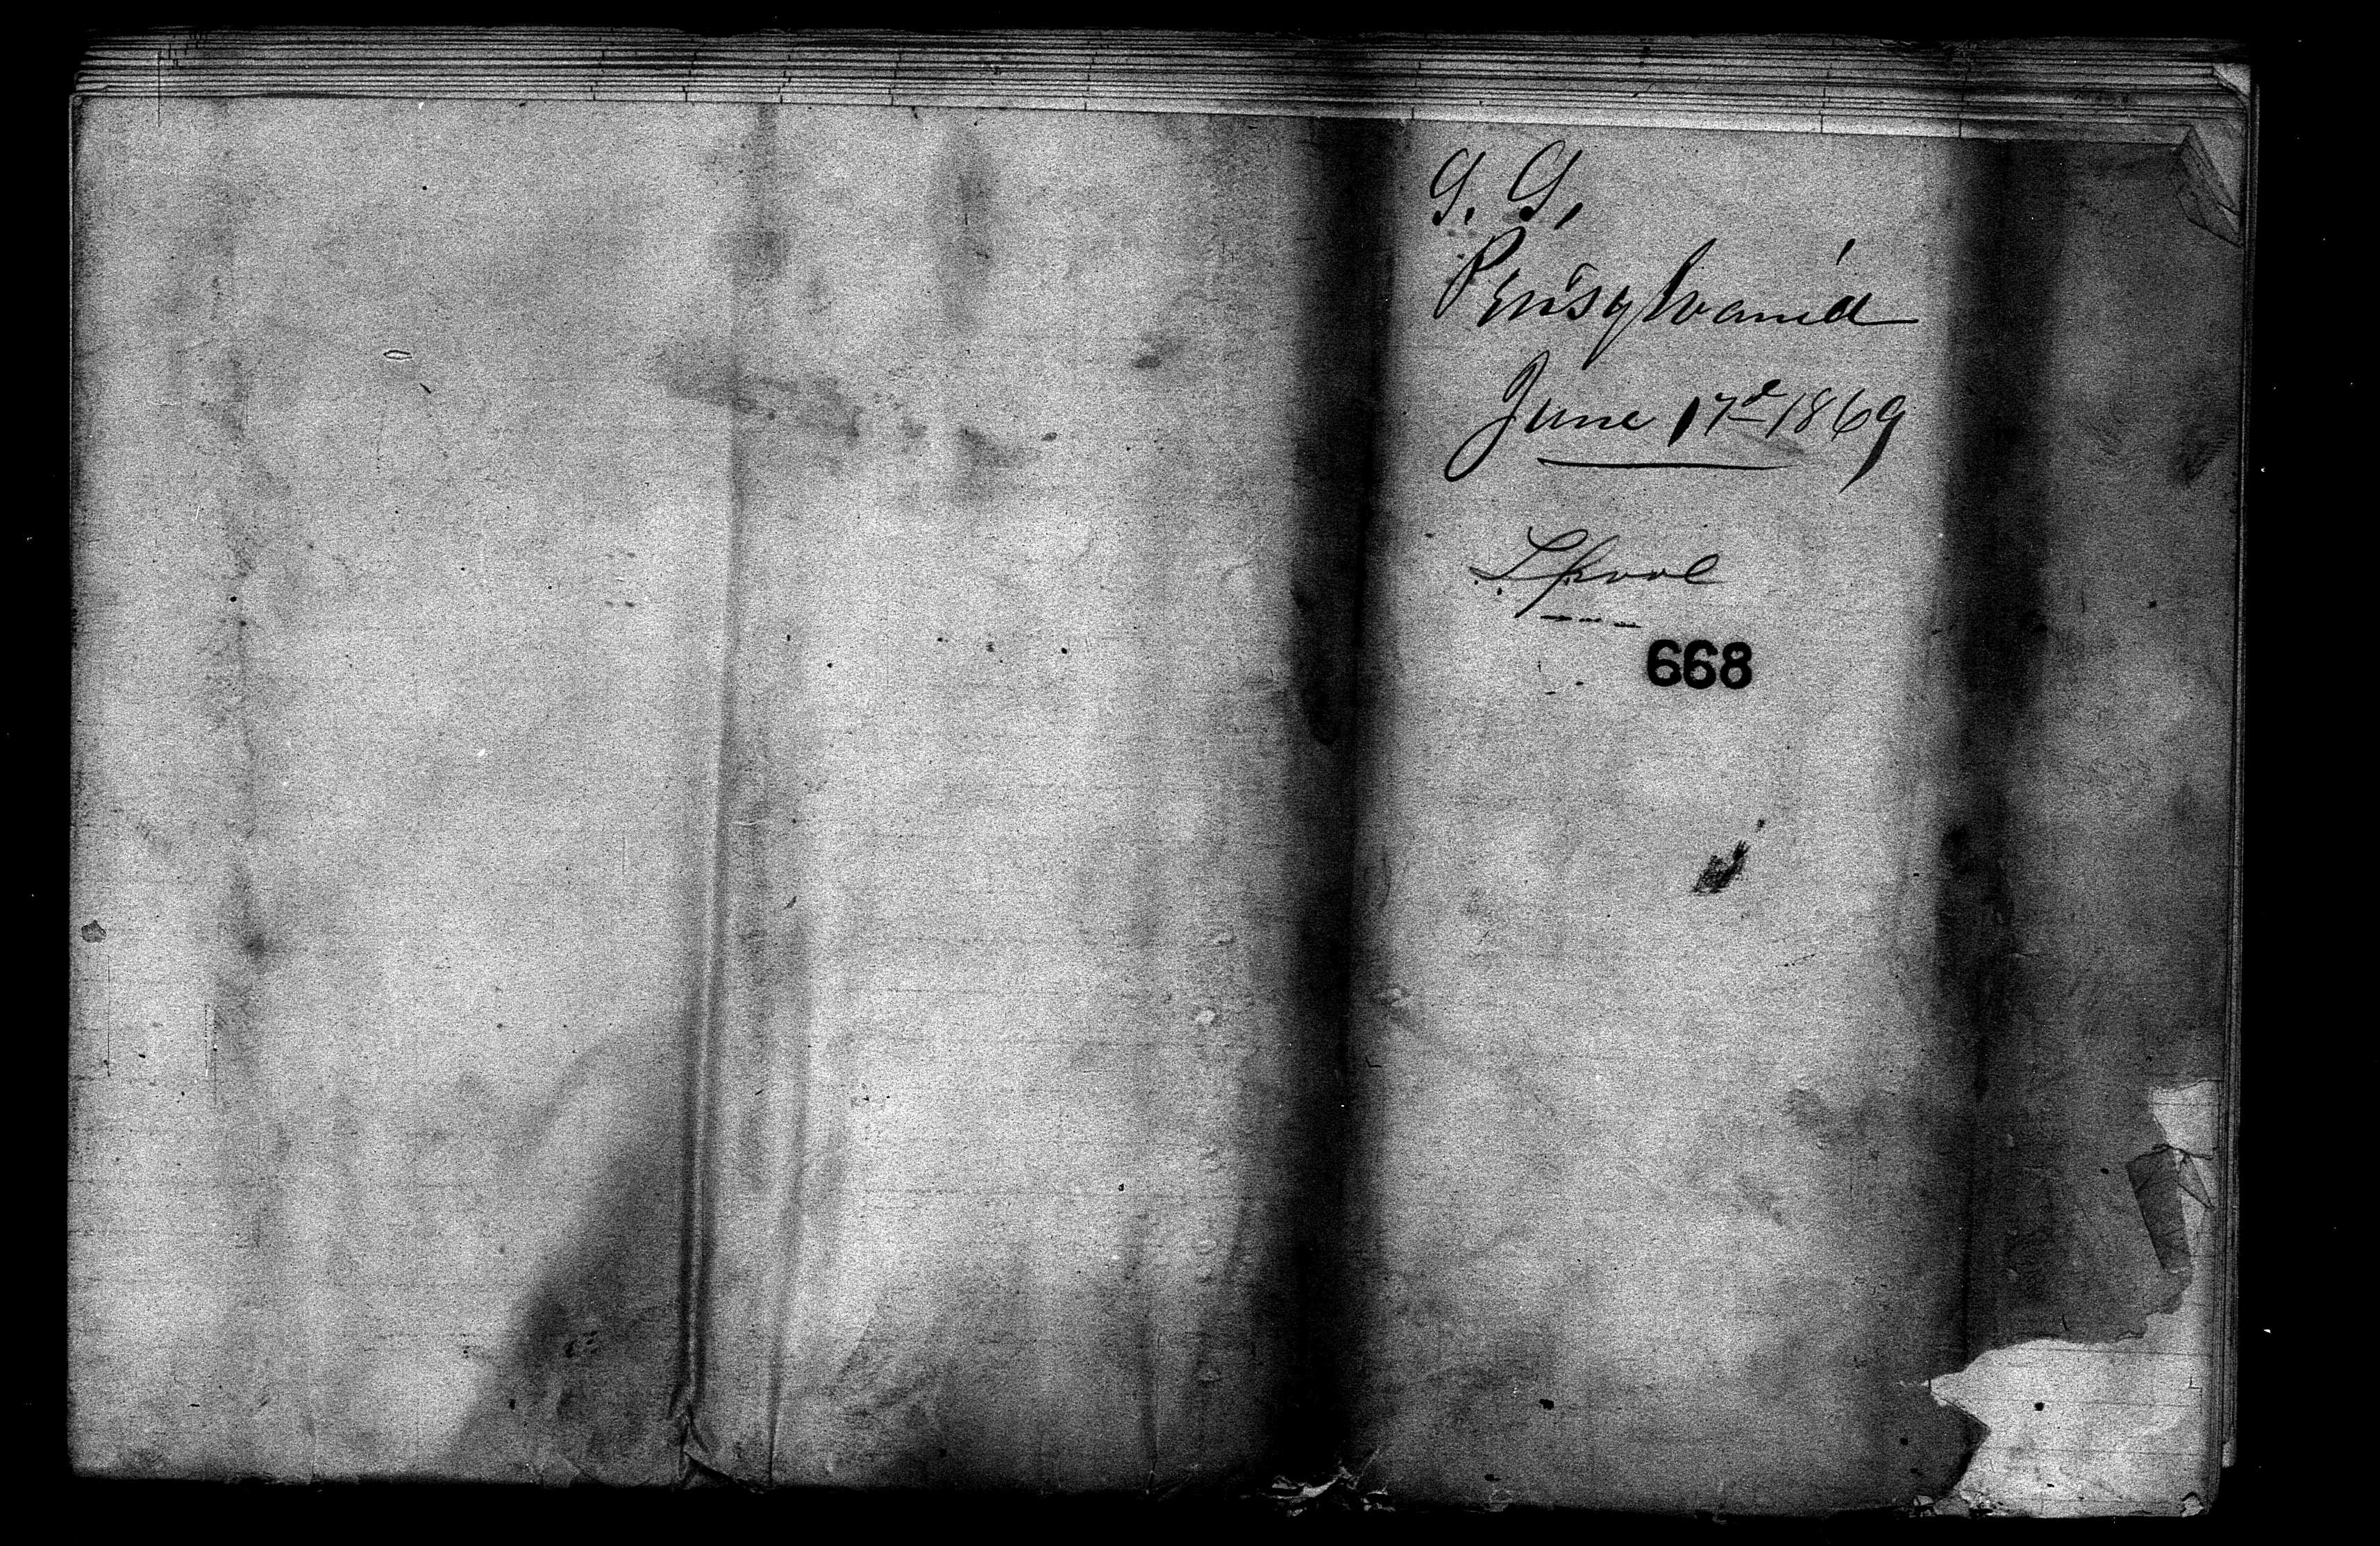 G. G.
Pensylvania
June 17d 1869
Lpool
668